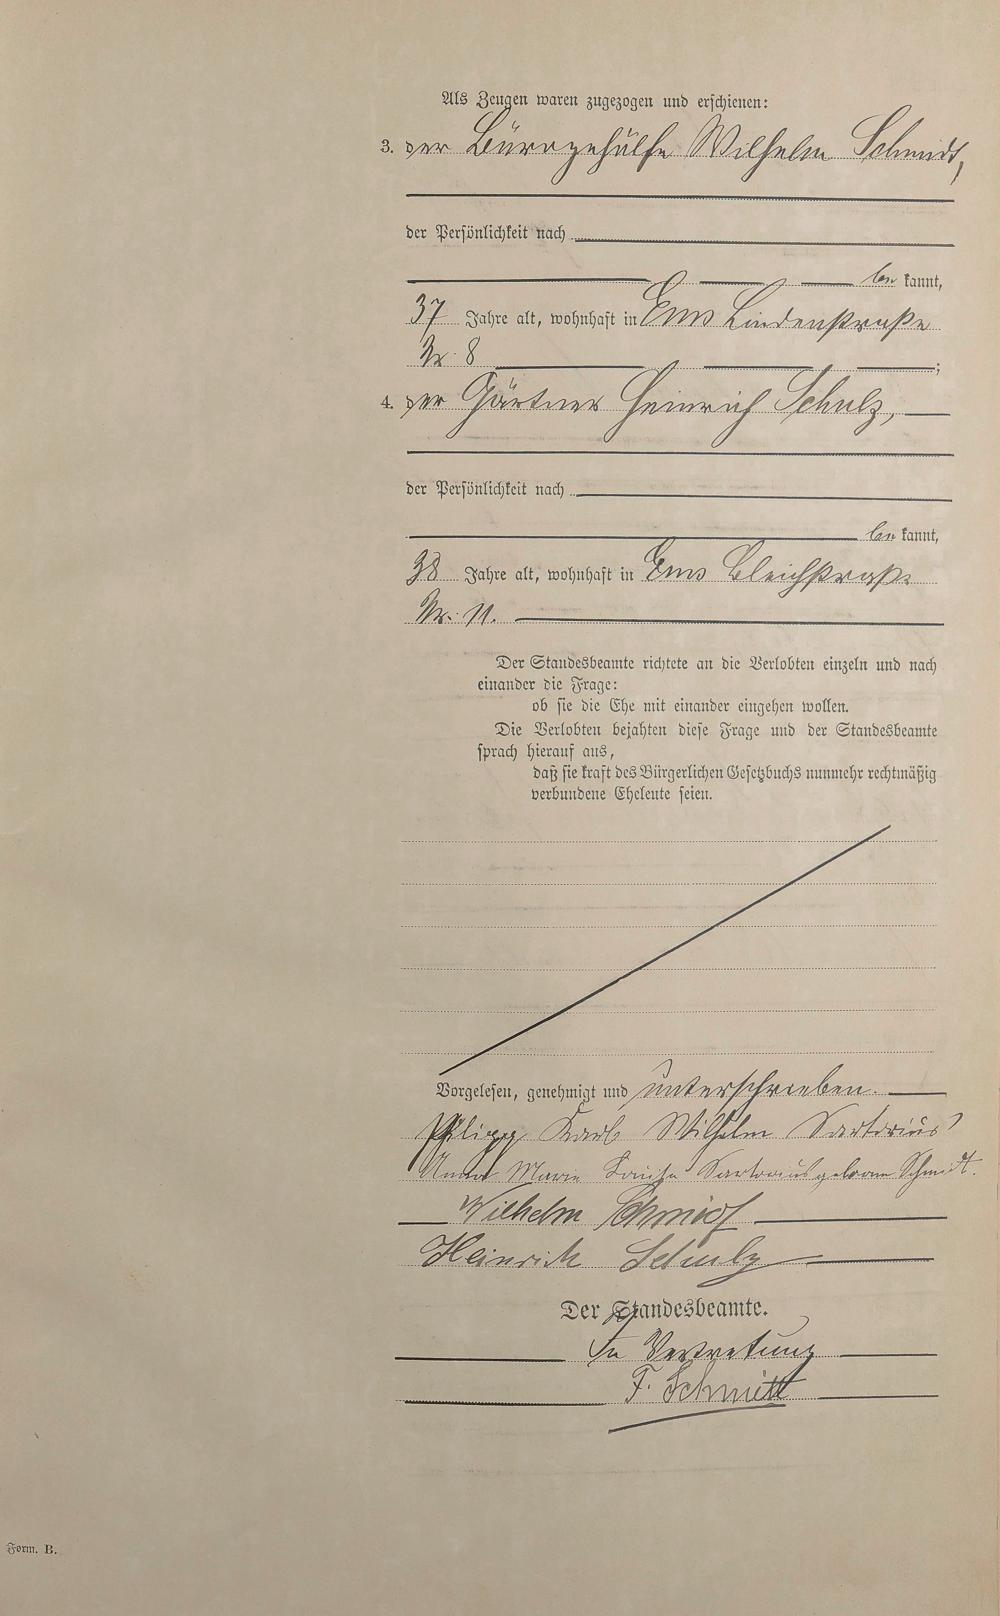 Als Zeugen waren zugezogen und erschienen:
3. der Bürogehülfe Wilhelm Schmidt,
der Persönlichkeit nach
be kannt,
37 Jahre alt, wohnhaft in Ems Lindenstraße
Nr. 8 ;
4. der Gärtner Heinrich Schulz,
der Persönlichkeit nach
be kannt,
38 Jahre alt, wohnhaft in Ems Bleichstraße
Nr. 11.
Der Standesbeamte richtete an die Verlobten einzeln und nach
einander die Frage:
ob sie die Ehe mit einander eingehen wollen.
Die Verlobten bejahten diese Frage und der Standesbeamte
sprach hierauf aus,
daß sie kraft des Bürgerlichen Gesetzbuchs nunmehr rechtmäßig
verbundene Eheleute seien.
Vorgelesen, genehmigt und unterschrieben.
Philipp Karl Wilhelm Sartorius
Anna Marie Louise Sartorius geborene Schmidt.
Wilhelm Schmidt
Heinrich Schulz
Der Standesbeamte.
In Vertretung
F. Schmitt
Form. B.